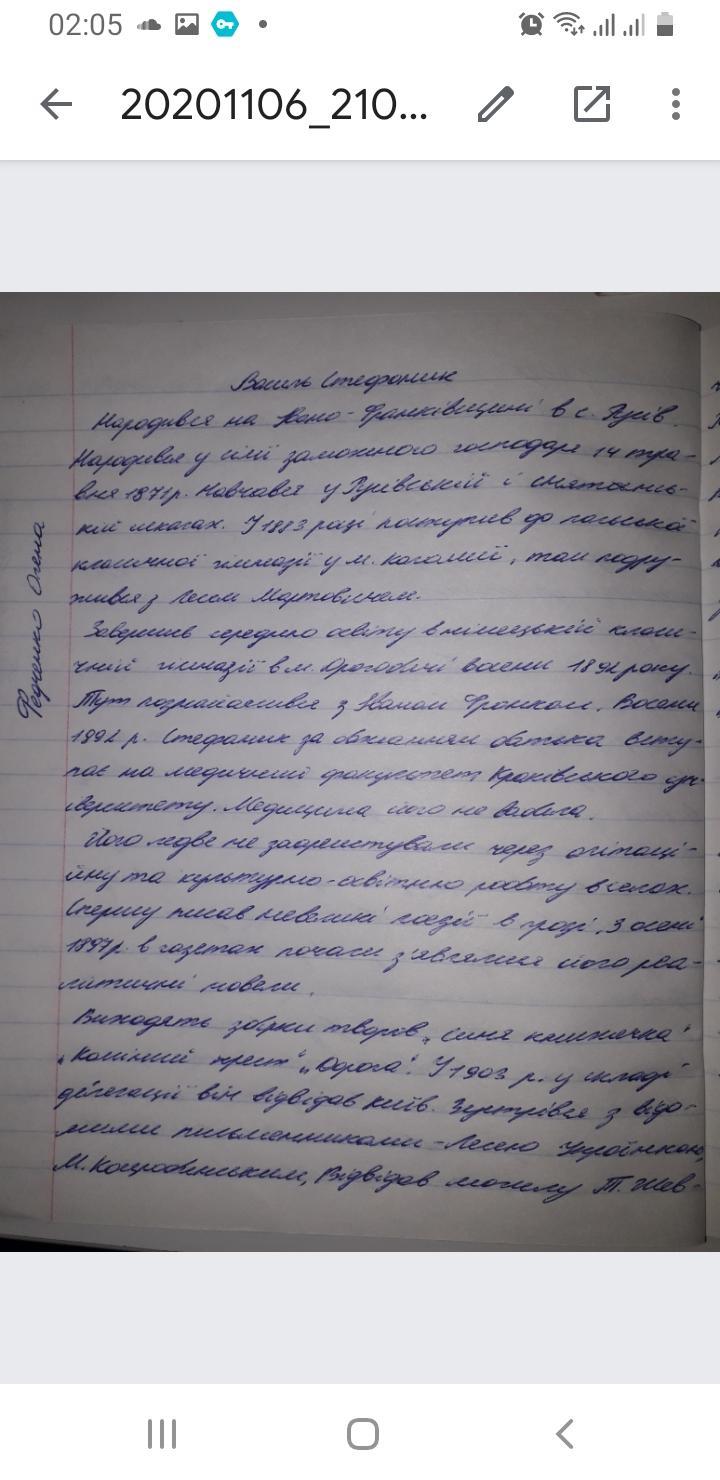 02:05
20201106_210...
Василь Стефаник
Народився на Івано-Франківщині в с. Русів.
Народився у сім'ї заможного господаря 14 тра-
вня 1871р. Навчався у Русівській і снятинсь-
кій школах. У 1883 році поступив до польської
класичної гімназії у м. Коломиї, там подру-
жився з Лесем Мартовичем.
Завершив середню освіту в німецькій класи-
чній гімназії в м. Дрогобичі восени 1892 року.
Тут познайомився з Іваном Франком. Восени
1892 р. Стефаник за бажанням батька всту-
пає на медичний факультет Краківського уні-
верситету. Медицина його не вабила.
Його ледве не заарештували через агітаці-
йну та культурно-освітню роботу в селах.
Спершу писав невеликі поезії в прозі. З осені
1897р. в газетах почали з'являтися його реа-
лістичні новели.
Виходять збірки творів „Синя книжечка"
„Камінний хрест" „Дорога". У 1903 р. у складі
делегації він відвідав Київ. Зустрівся з відо-
мими письменниками - Лесею Українкою,
М. Коцюбинським, Відвідав могилу Т. Шев-
Федченко Олена